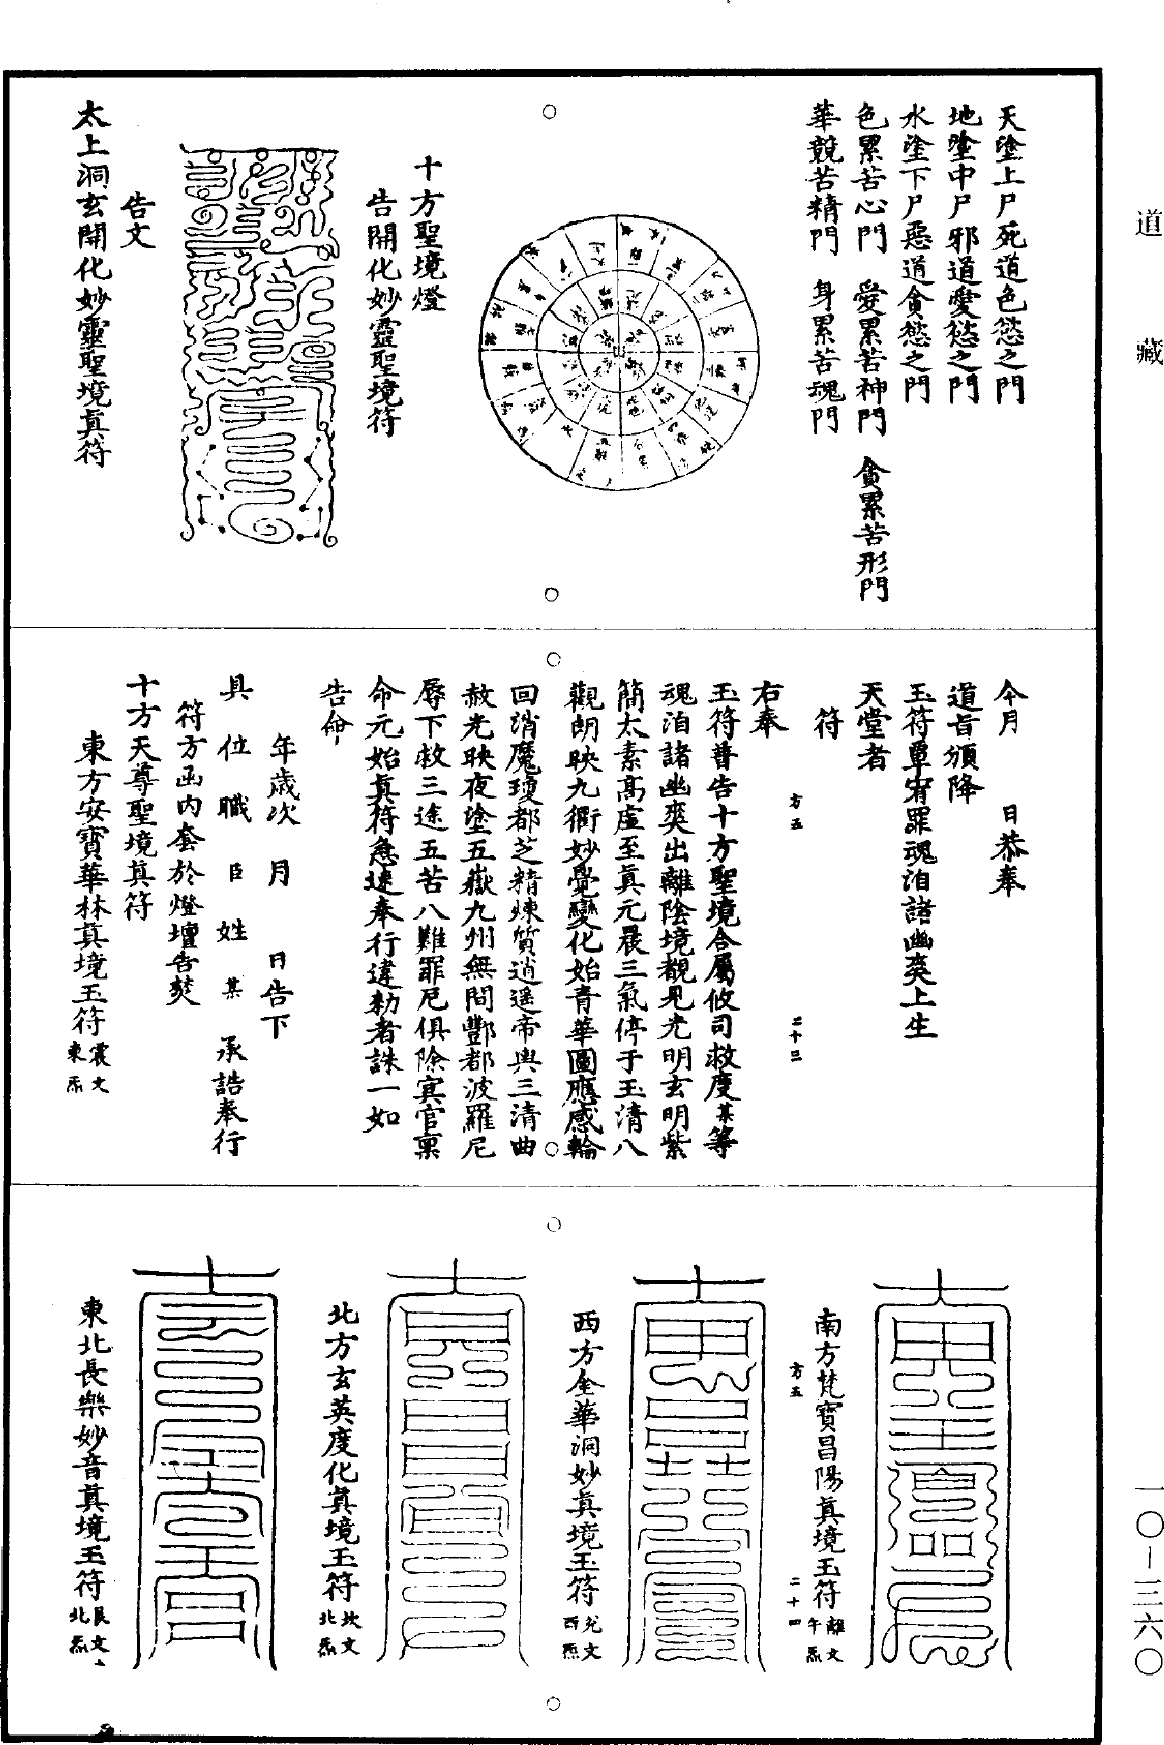 道藏
天塗上尸死道色慾之門
地塗中尸邪道愛慾之門
水塗下尸惡道貪慾之門
色累苦心門　愛累苦神門　貪累苦形門
華競苦精門　身累苦魂門
十方聖境燈
告開化妙靈聖境符
告文
太上洞玄開化妙靈聖境真符
今月　日恭奉
道旨頒降
玉符覃宥罪魂洎諸幽爽上生
天堂者
符
方五　二十三
右奉
玉符普告十方聖境合屬攸司救度某等
魂洎諸幽爽出離陰境覩見光明玄明紫
簡太素高虛至真元晨三氣停于玉清八
觀朗映九衢妙覺變化始青華圖應感輪
回消魔瓊都芝精煉質逍遥帝輿三清曲
赦光映夜塗五嶽九州無間酆都波羅尼
辱下救三途五苦八難罪尼俱除冥官稟
命元始真符急速奉行違勑者誅一如
告命
年歲次　月　日告下
具位職臣姓某承誥奉行
符方函内套於燈壇告焚
十方天尊聖境真符
東方安寶華林真境玉符震文東炁
南方梵寶昌陽真境玉符離文午炁
方五　二十四
西方金華洞妙真境玉符兌文酉炁
北方玄英度化真境玉符坎文北炁
東北長樂妙音真境玉符艮文北炁
一〇—三六〇